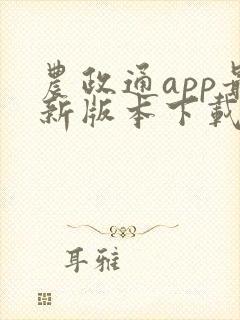 農政通app最
新版本下載
耳雅